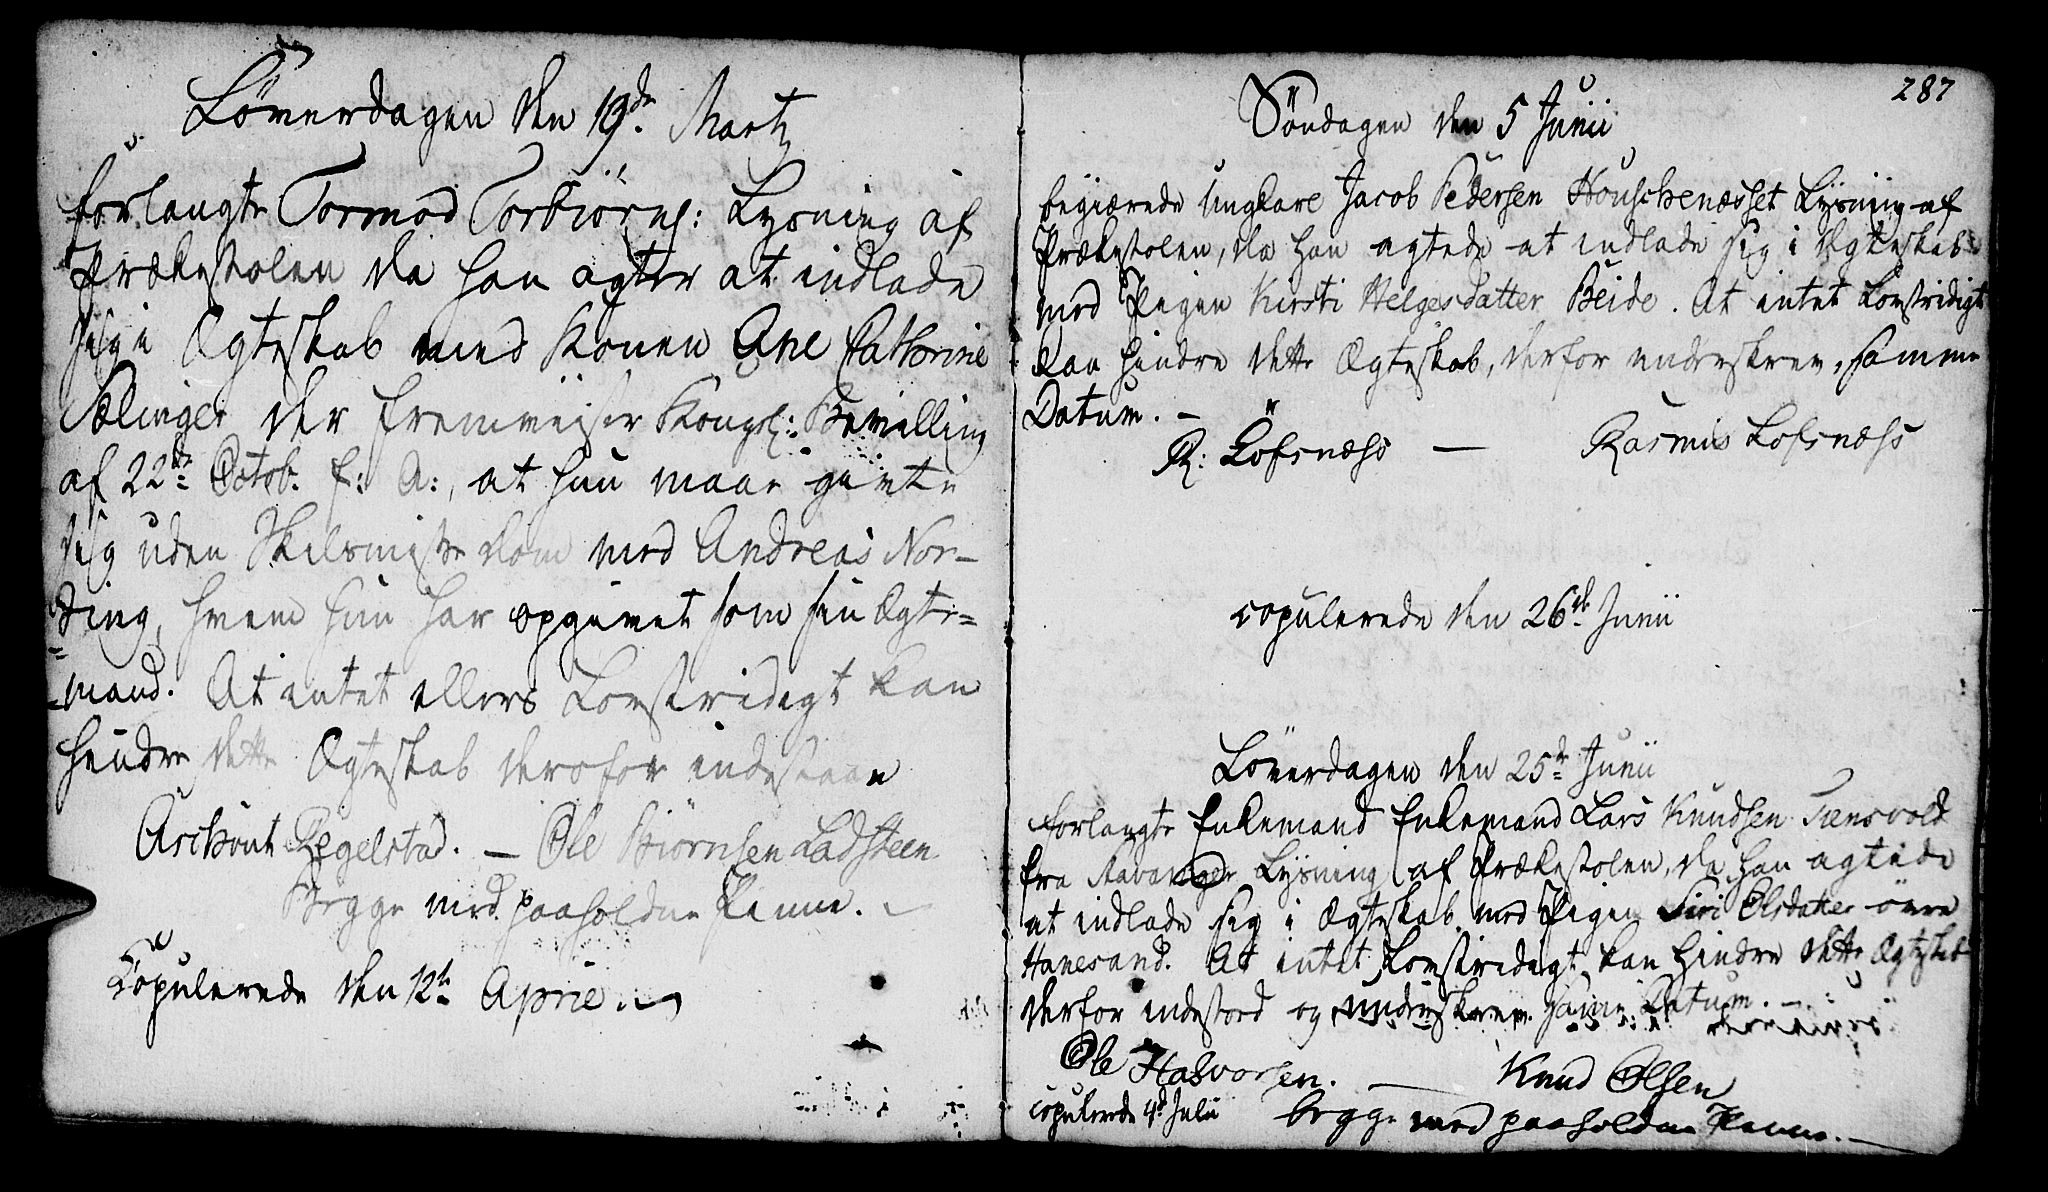 Löverdagen den 19de Martz
forlangte Tormod Torbiörns: Lysning af
Prækestolen da han agter at indlade
sig i Ægteskab med Konen Ane Cathrine
Selinger der fremviiser Kongel: Bevilling
af 22de Octob. f: A:, at hun maae givte
sig uden Skilsmisse Dom med Andreas Nor-
ding, hvem hun har opgivet som sin Ægte=
=mand. At intet ellers Lovstridigt kan
hindre dette Ægteskab derofor indestaae
AschoutЕгelstad. — Ole Biörnsen Ladsteen
Begge med paaholdne Penne.
Copulerede den 12te April.
287
Söndagen den 5 Junii
begiærede Ungkare Jacob Pedersen Houschenæsset Lysning af
Prækestolen, da han agtede at indlade sig i Ægteskab
med Pigen Kirsti Helgesdatter Beide. At intet Lovstridigt
kan hindre dette Ægteskab, derfor underskrev, samme
Datum. —
R: Löfsnæss — Rasmus Lofsnæss
copulerede den 26de Junii
Löverdagen den 25de Junii
forlangte Enkemand Enkemand Lars Knudsen Tiensvold
fra Stavanger Lysning af Prækestolen, da han agtede
at indlade sig i Ægteskab med Pigen Siri Olsdatter övre
Hanesand. At intet Lovstridigt kan hindre dette Ægteskab
derfor indestod og underskrev samme Datum. —
Ole Halvorsen. — Knud Olsen
copulerede 4de Julii begge med paaholdne Penne. —